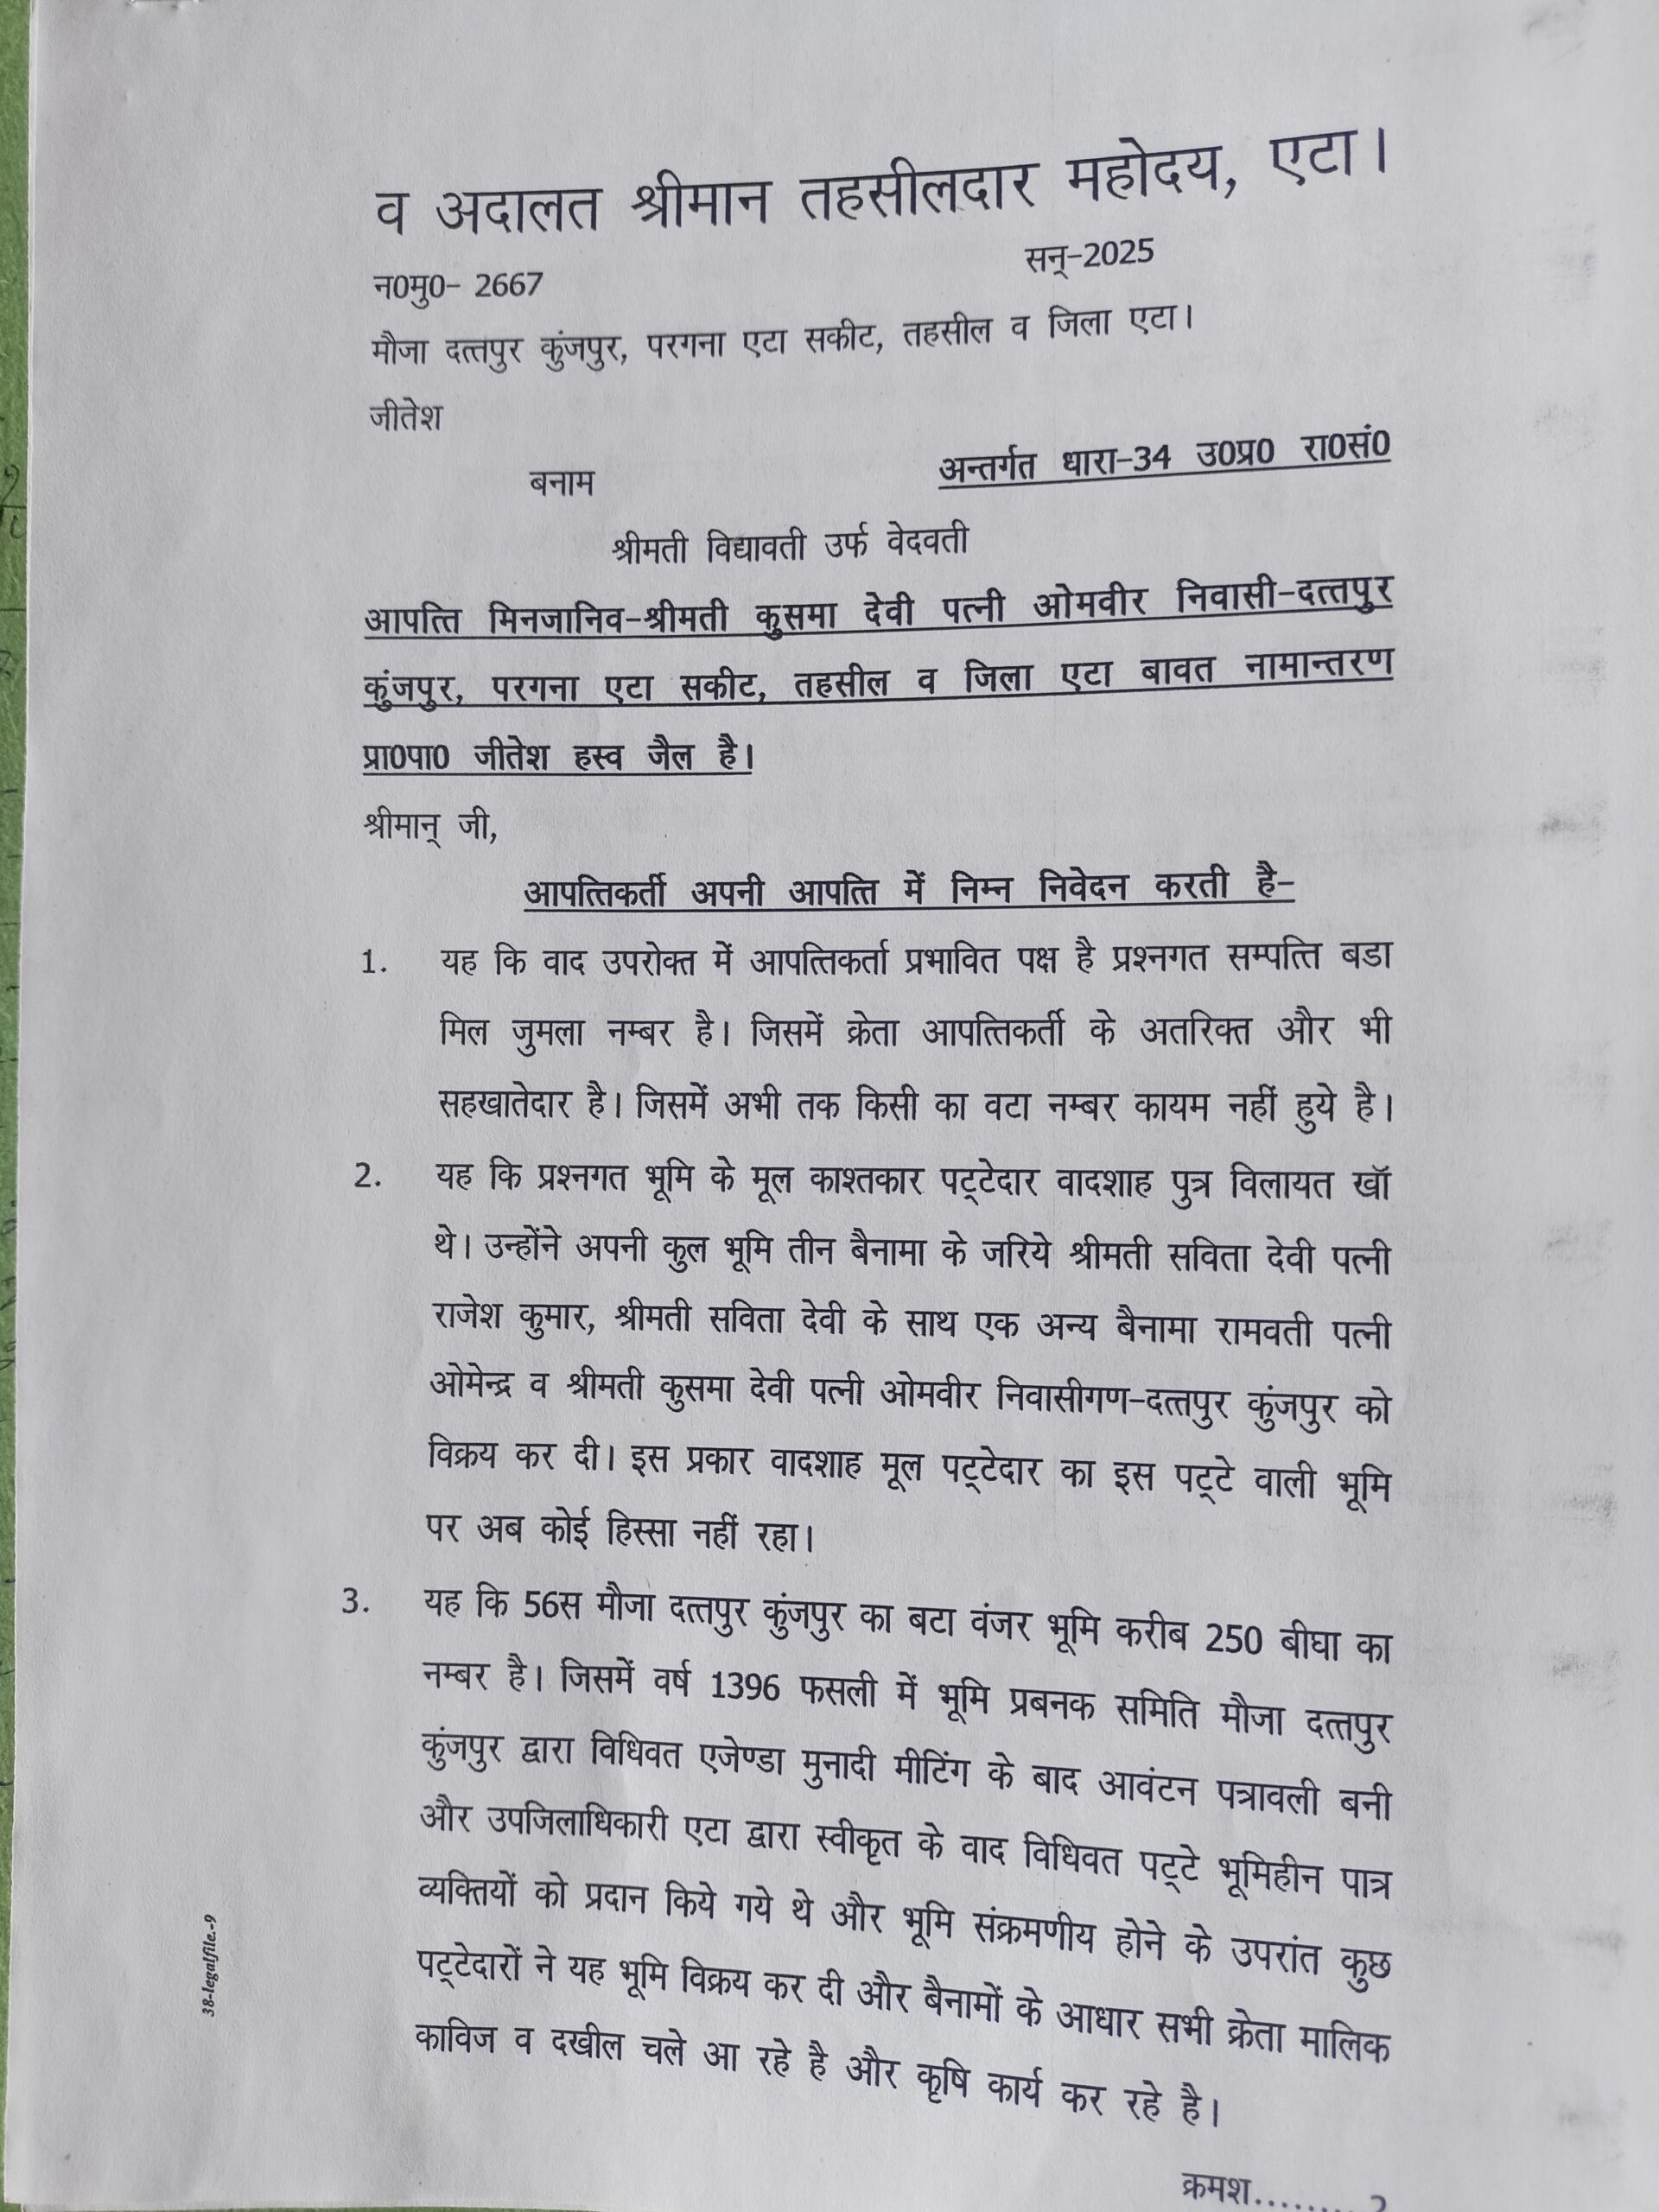 व अदालत श्रीमान तहसीलदार महोदय, एटा।
न0मु0- 2667 सन्-2025
मौजा दत्तपुर कुंजपुर, परगना एटा सकीट, तहसील व जिला एटा।
जीतेश
बनाम अन्तर्गत धारा-34 उ0प्र0 रा0सं0
श्रीमती विद्यावती उर्फ वेदवती
आपत्ति मिनजानिव-श्रीमती कुसमा देवी पत्नी ओमवीर निवासी-दत्तपुर
कुंजपुर, परगना एटा सकीट, तहसील व जिला एटा बावत नामान्तरण
प्रा0पा0 जीतेश हस्व जैल है।
श्रीमान् जी,
आपत्तिकर्ती अपनी आपत्ति में निम्न निवेदन करती है-
1. यह कि वाद उपरोक्त में आपत्तिकर्ता प्रभावित पक्ष है प्रश्नगत सम्पत्ति बडा
मिल जुमला नम्बर है। जिसमें क्रेता आपत्तिकर्ती के अतरिक्त और भी
सहखातेदार है। जिसमें अभी तक किसी का वटा नम्बर कायम नहीं हुये है।
2. यह कि प्रश्नगत भूमि के मूल काश्तकार पट्टेदार वादशाह पुत्र विलायत खॉ
थे। उन्होंने अपनी कुल भूमि तीन बैनामा के जरिये श्रीमती सविता देवी पत्नी
राजेश कुमार, श्रीमती सविता देवी के साथ एक अन्य बैनामा रामवती पत्नी
ओमेन्द्र व श्रीमती कुसमा देवी पत्नी ओमवीर निवासीगण-दत्तपुर कुंजपुर को
विक्रय कर दी। इस प्रकार वादशाह मूल पट्टेदार का इस पट्टे वाली भूमि
पर अब कोई हिस्सा नहीं रहा।
3. यह कि 56स मौजा दत्तपुर कुंजपुर का बटा वंजर भूमि करीब 250 बीघा का
नम्बर है। जिसमें वर्ष 1396 फसली में भूमि प्रबनक समिति मौजा दत्तपुर
कुंजपुर द्वारा विधिवत एजेण्डा मुनादी मीटिंग के बाद आवंटन पत्रावली बनी
और उपजिलाधिकारी एटा द्वारा स्वीकृत के वाद विधिवत पट्टे भूमिहीन पात्र
व्यक्तियों को प्रदान किये गये थे और भूमि संक्रमणीय होने के उपरांत कुछ
पट्टेदारों ने यह भूमि विक्रय कर दी और बैनामों के आधार सभी क्रेता मालिक
काविज व दखील चले आ रहे है और कृषि कार्य कर रहे है।
38-legalfile.-9
क्रमश.........2